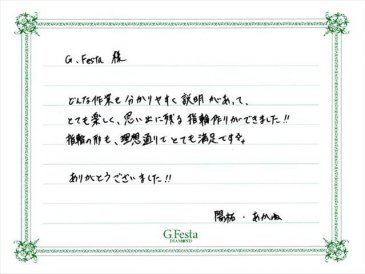 G.Festa 様
どんな作業も分かりやすく説明があって、
とても楽しく、思い出に残る指輪作りができました!!
指輪の形も、理想通りでとても満足です。
ありがとうございました!!
・あかね
G.Festa
DIAMOND